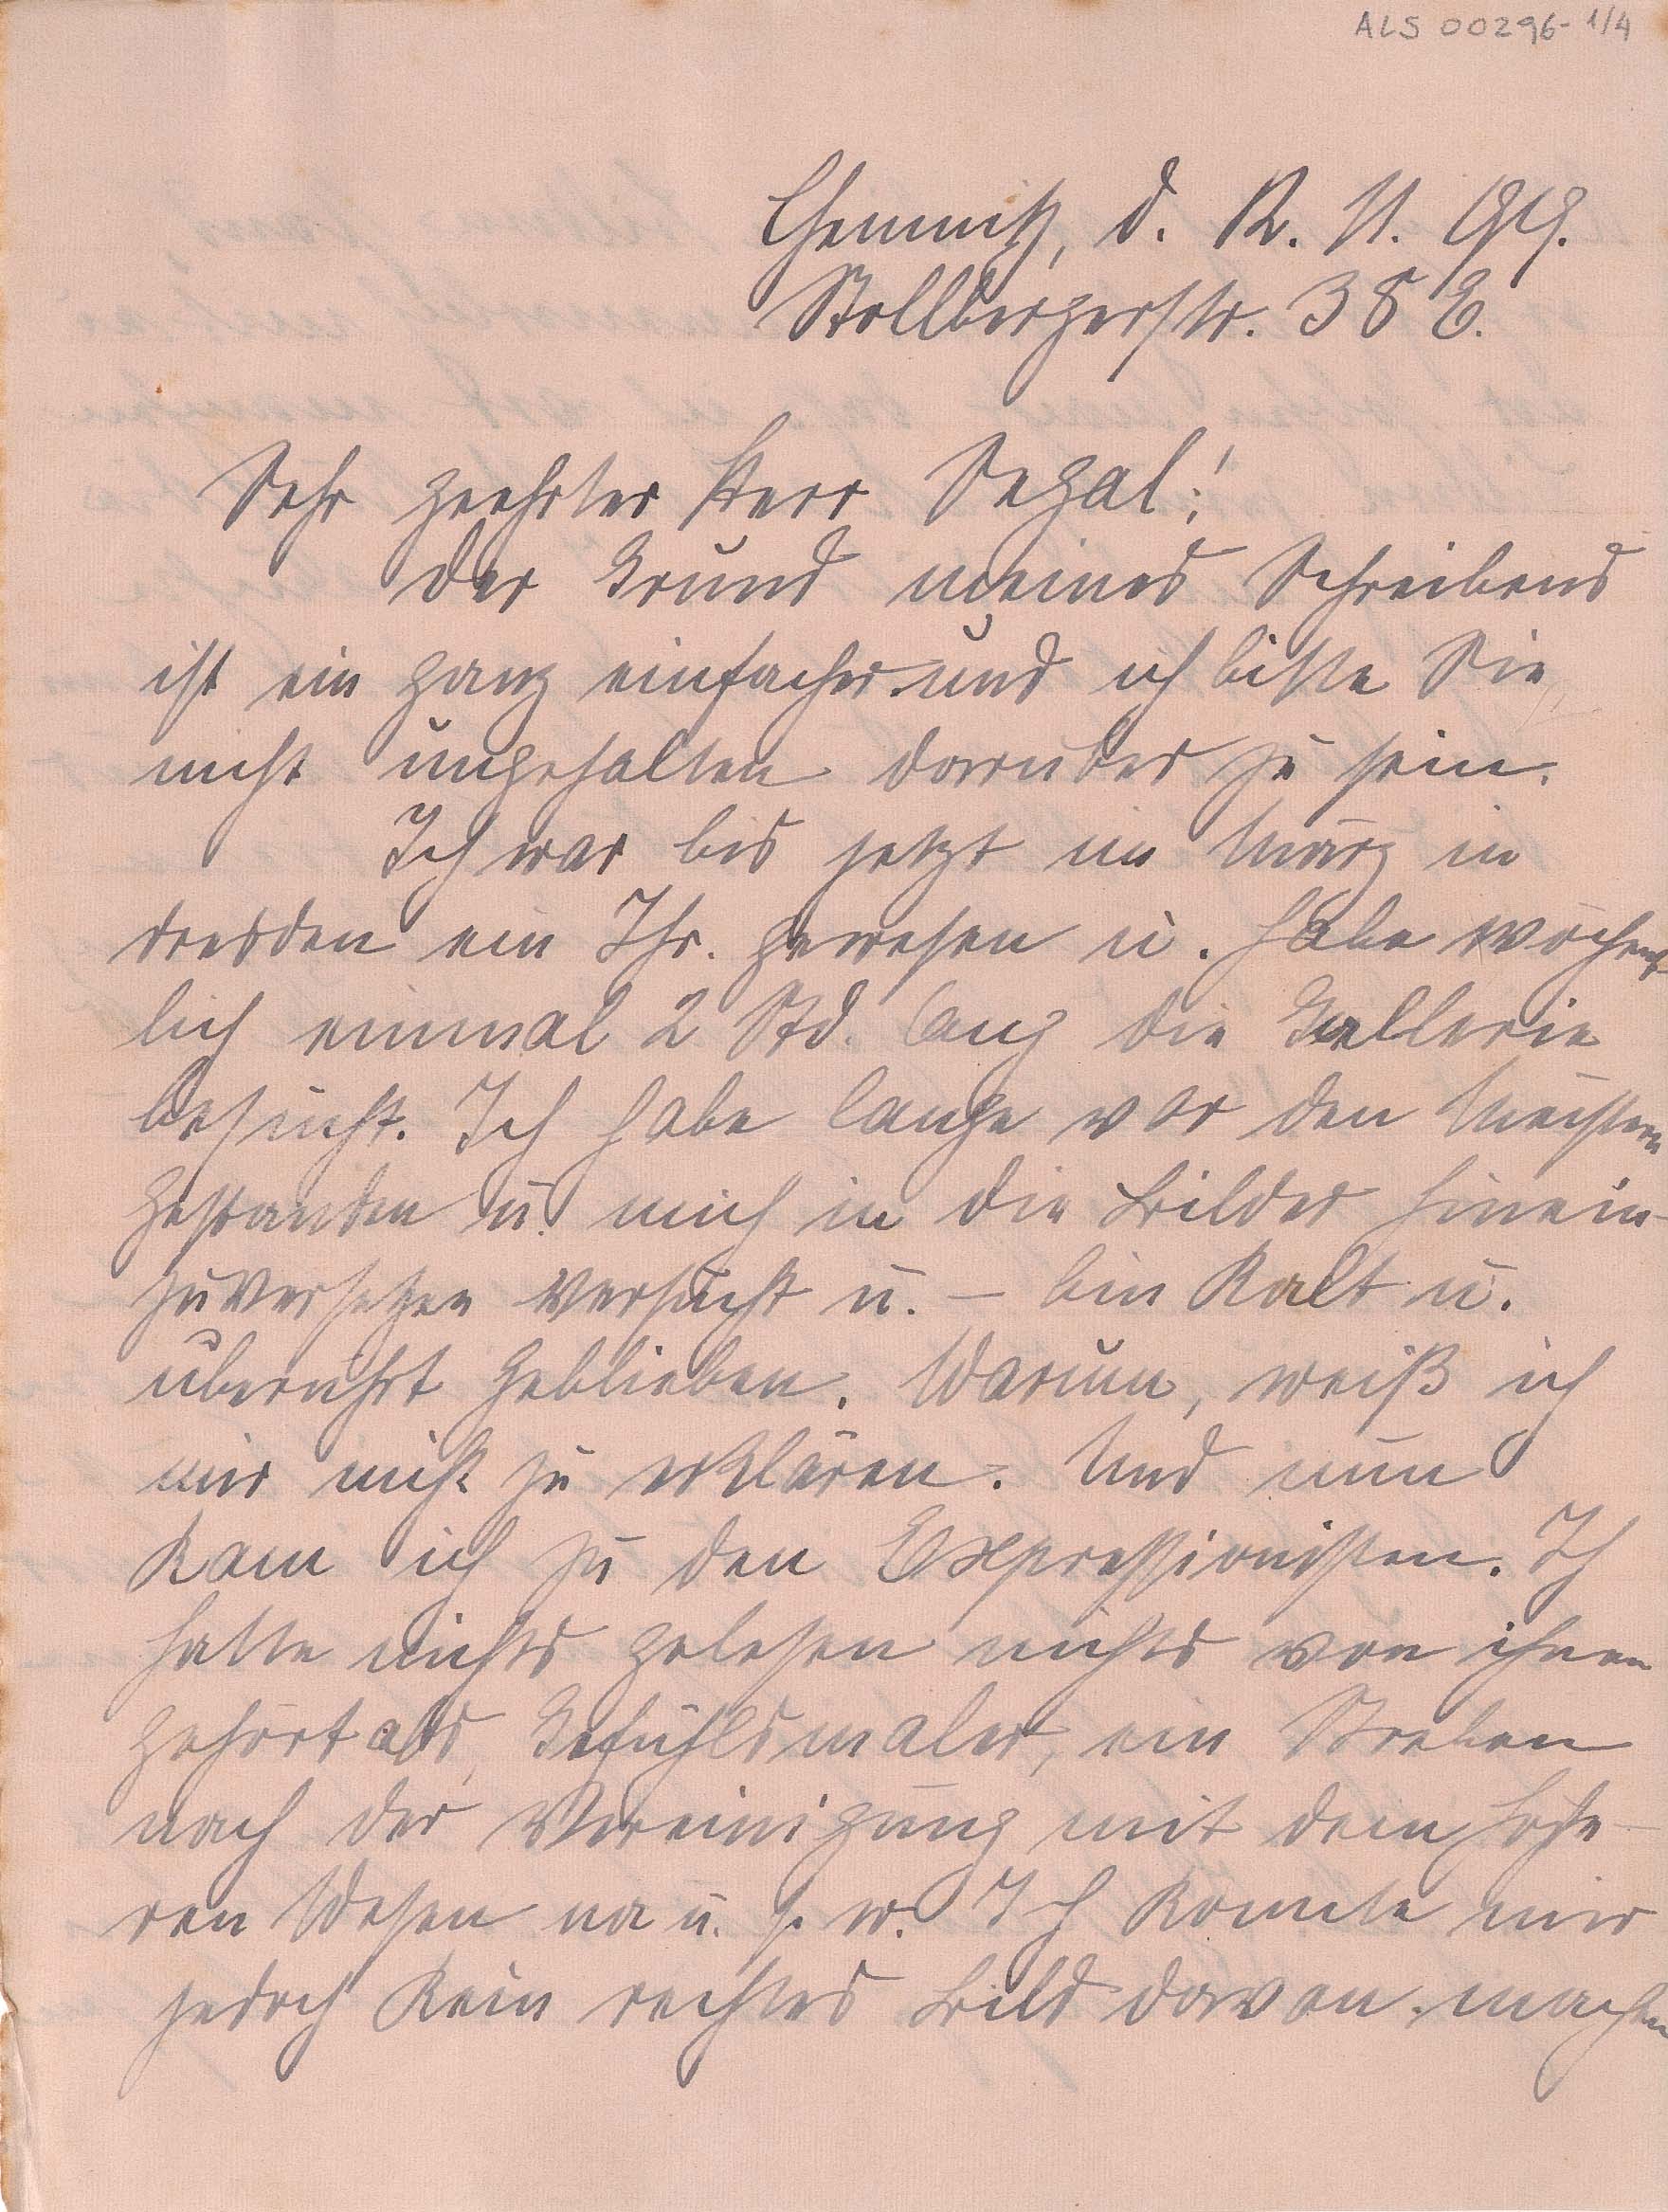 ALS 00296-1/4
Chemnitz, d.
Stollbergerstr. 38 E.
Sehr geehrter Herr Segal!
Der Grund meines Schreibens
ist ein ganz einfacher und ich bitte Sie,
nicht ungehalten darüber zu sein.
Ich war bis jetzt im März in
Dresden ein Jhr. gewesen u. habe wöchent-
lich einmal 2 Std. lang die Gallerie
besucht. Ich habe lange vor den Meistern
gestanden u. mich in die Bilder hinein-
zuversetzen versucht u. – bin kalt u.
überührt geblieben. Warum, weiß ich
mir nicht zu erklären. Und nun
kam ich zu den Expressionisten. Ich
hatte nichts gelesen nichts von ihnen
gehört als, Gefühlsmaler, ein Streben
nach der Vereinigung mit dem höhe-
ren Wesen na u. s. w. Ich konnte mir
jedoch kein rechtes Bild davon machen